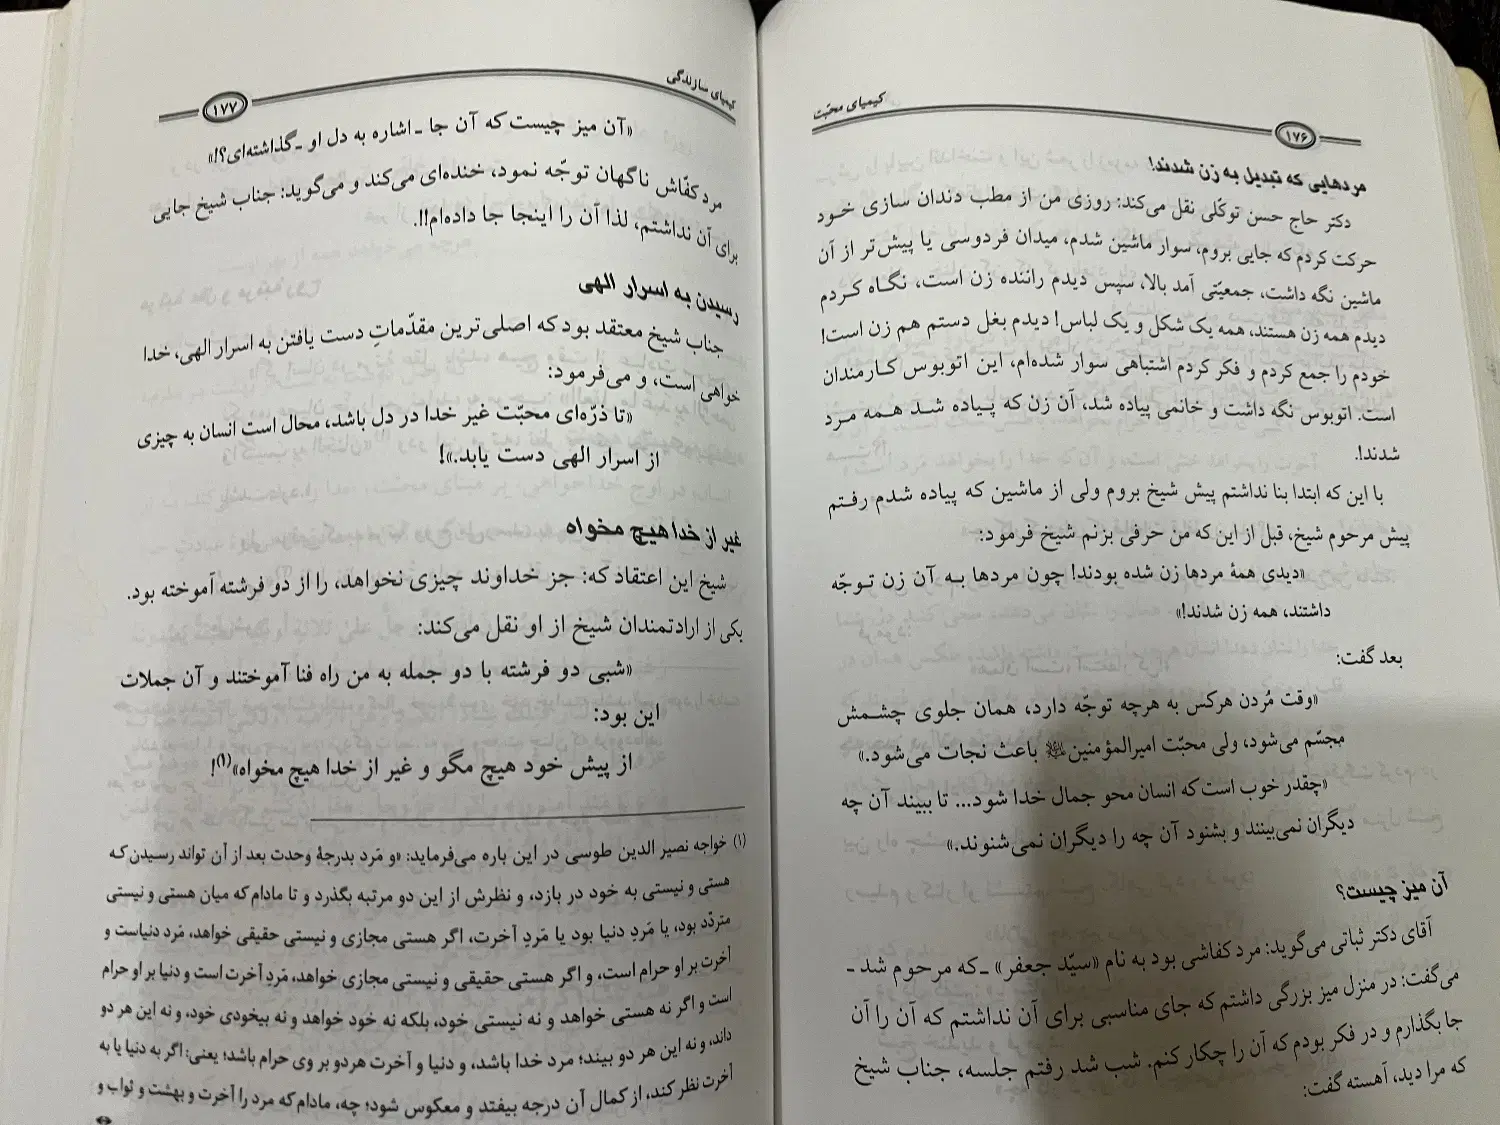 کیمیای محبّت
۱۷۶
مردهایی که تبدیل به زن شدند!
دکتر حاج حسن توکّلی نقل می‌کند: روزی من از مطب دندان سازی خود
حرکت کردم که جایی بروم، سوار ماشین شدم، میدان فردوسی یا پیش‌تر از آن
ماشین نگه داشت، جمعیّتی آمد بالا، سپس دیدم راننده زن است، نگاه کردم
دیدم همه زن هستند، همه یک شکل و یک لباس! دیدم بغل دستم هم زن است!
خودم را جمع کردم و فکر کردم اشتباهی سوار شده‌ام، این اتوبوس کارمندان
است. اتوبوس نگه داشت و خانمی پیاده شد، آن زن که پیاده شد همه مرد
شدند!.
با این که ابتدا بنا نداشتم پیش شیخ بروم ولی از ماشین که پیاده شدم رفتم
پیش مرحوم شیخ، قبل از این که من حرفی بزنم شیخ فرمود:
«دیدی همهٔ مردها زن شده بودند! چون مردها به آن زن توجّه
داشتند، همه زن شدند!»
بعد گفت:
«وقت مُردن هرکس به هرچه توجّه دارد، همان جلوی چشمش
مجسّم می‌شود، ولی محبّت امیرالمؤمنین باعث نجات می‌شود.»
«چقدر خوب است که انسان محو جمال خدا شود... تا ببیند آن چه
دیگران نمی‌بینند و بشنود آن چه را دیگران نمی‌شنوند.»
آن میز چیست؟
آقای دکتر ثباتی می‌گوید: مرد کفاشی بود به نام «سیّد جعفر» ـ که مرحوم شد ـ
می‌گفت: در منزل میز بزرگی داشتم که جای مناسبی برای آن نداشتم که آن را آن
جا بگذارم و در فکر بودم که آن را چکار کنم. شب شد رفتم جلسه، جناب شیخ
که مرا دید، آهسته گفت:
کیمیای سازندگی
۱۷۷
«آن میز چیست که آن جا ـ اشاره به دل او ـ گذاشته‌ای؟!»
مرد کفّاش ناگهان توجّه نمود، خنده‌ای می‌کند و می‌گوید: جناب شیخ جایی
برای آن نداشتم، لذا آن را اینجا جا داده‌ام!!.
رسیدن به اسرار الهی
جناب شیخ معتقد بود که اصلی‌ترین مقدّماتِ دست یافتن به اسرار الهی، خدا
خواهی است، و می‌فرمود:
«تا ذرّه‌ای محبّت غیر خدا در دل باشد، محال است انسان به چیزی
از اسرار الهی دست یابد.»!
غیر از خدا هیچ مخواه
شیخ این اعتقاد که: جز خداوند چیزی نخواهد، را از دو فرشته آموخته بود.
یکی از ارادتمندان شیخ از او نقل می‌کند:
«شبی دو فرشته با دو جمله به من راه فنا آموختند و آن جملات
این بود:
از پیش خود هیچ مگو و غیر از خدا هیچ مخواه»(۱)!
(۱) خواجه نصیر الدین طوسی در این باره می‌فرماید: «و مَرد بدرجهٔ وحدت بعد از آن تواند رسیدن که
هستی و نیستی به خود در بازد، و نظرش از این دو مرتبه بگذرد و تا مادام که میان هستی و نیستی
متردّد بود، یا مَردِ دنیا بود یا مَردِ آخرت، اگر هستی مجازی و نیستی حقیقی خواهد، مَرد دنیاست و
آخرت بر او حرام است، و اگر هستی حقیقی و نیستی مجازی خواهد، مَردِ آخرت است و دنیا بر او حرام
است و اگر نه هستی خواهد و نه نیستی خود، بلکه نه خود خواهد و نه بیخودی خود، و نه این هر دو
داند، و نه این هر دو بیند؛ مرد خدا باشد، و دنیا و آخرت هردو بر وی حرام باشد؛ یعنی: اگر به دنیا یا به
آخرت نظر کند، از کمال آن درجه بیفتد و معکوس شود؛ چه، مادام که مرد را آخرت و بهشت و ثواب و